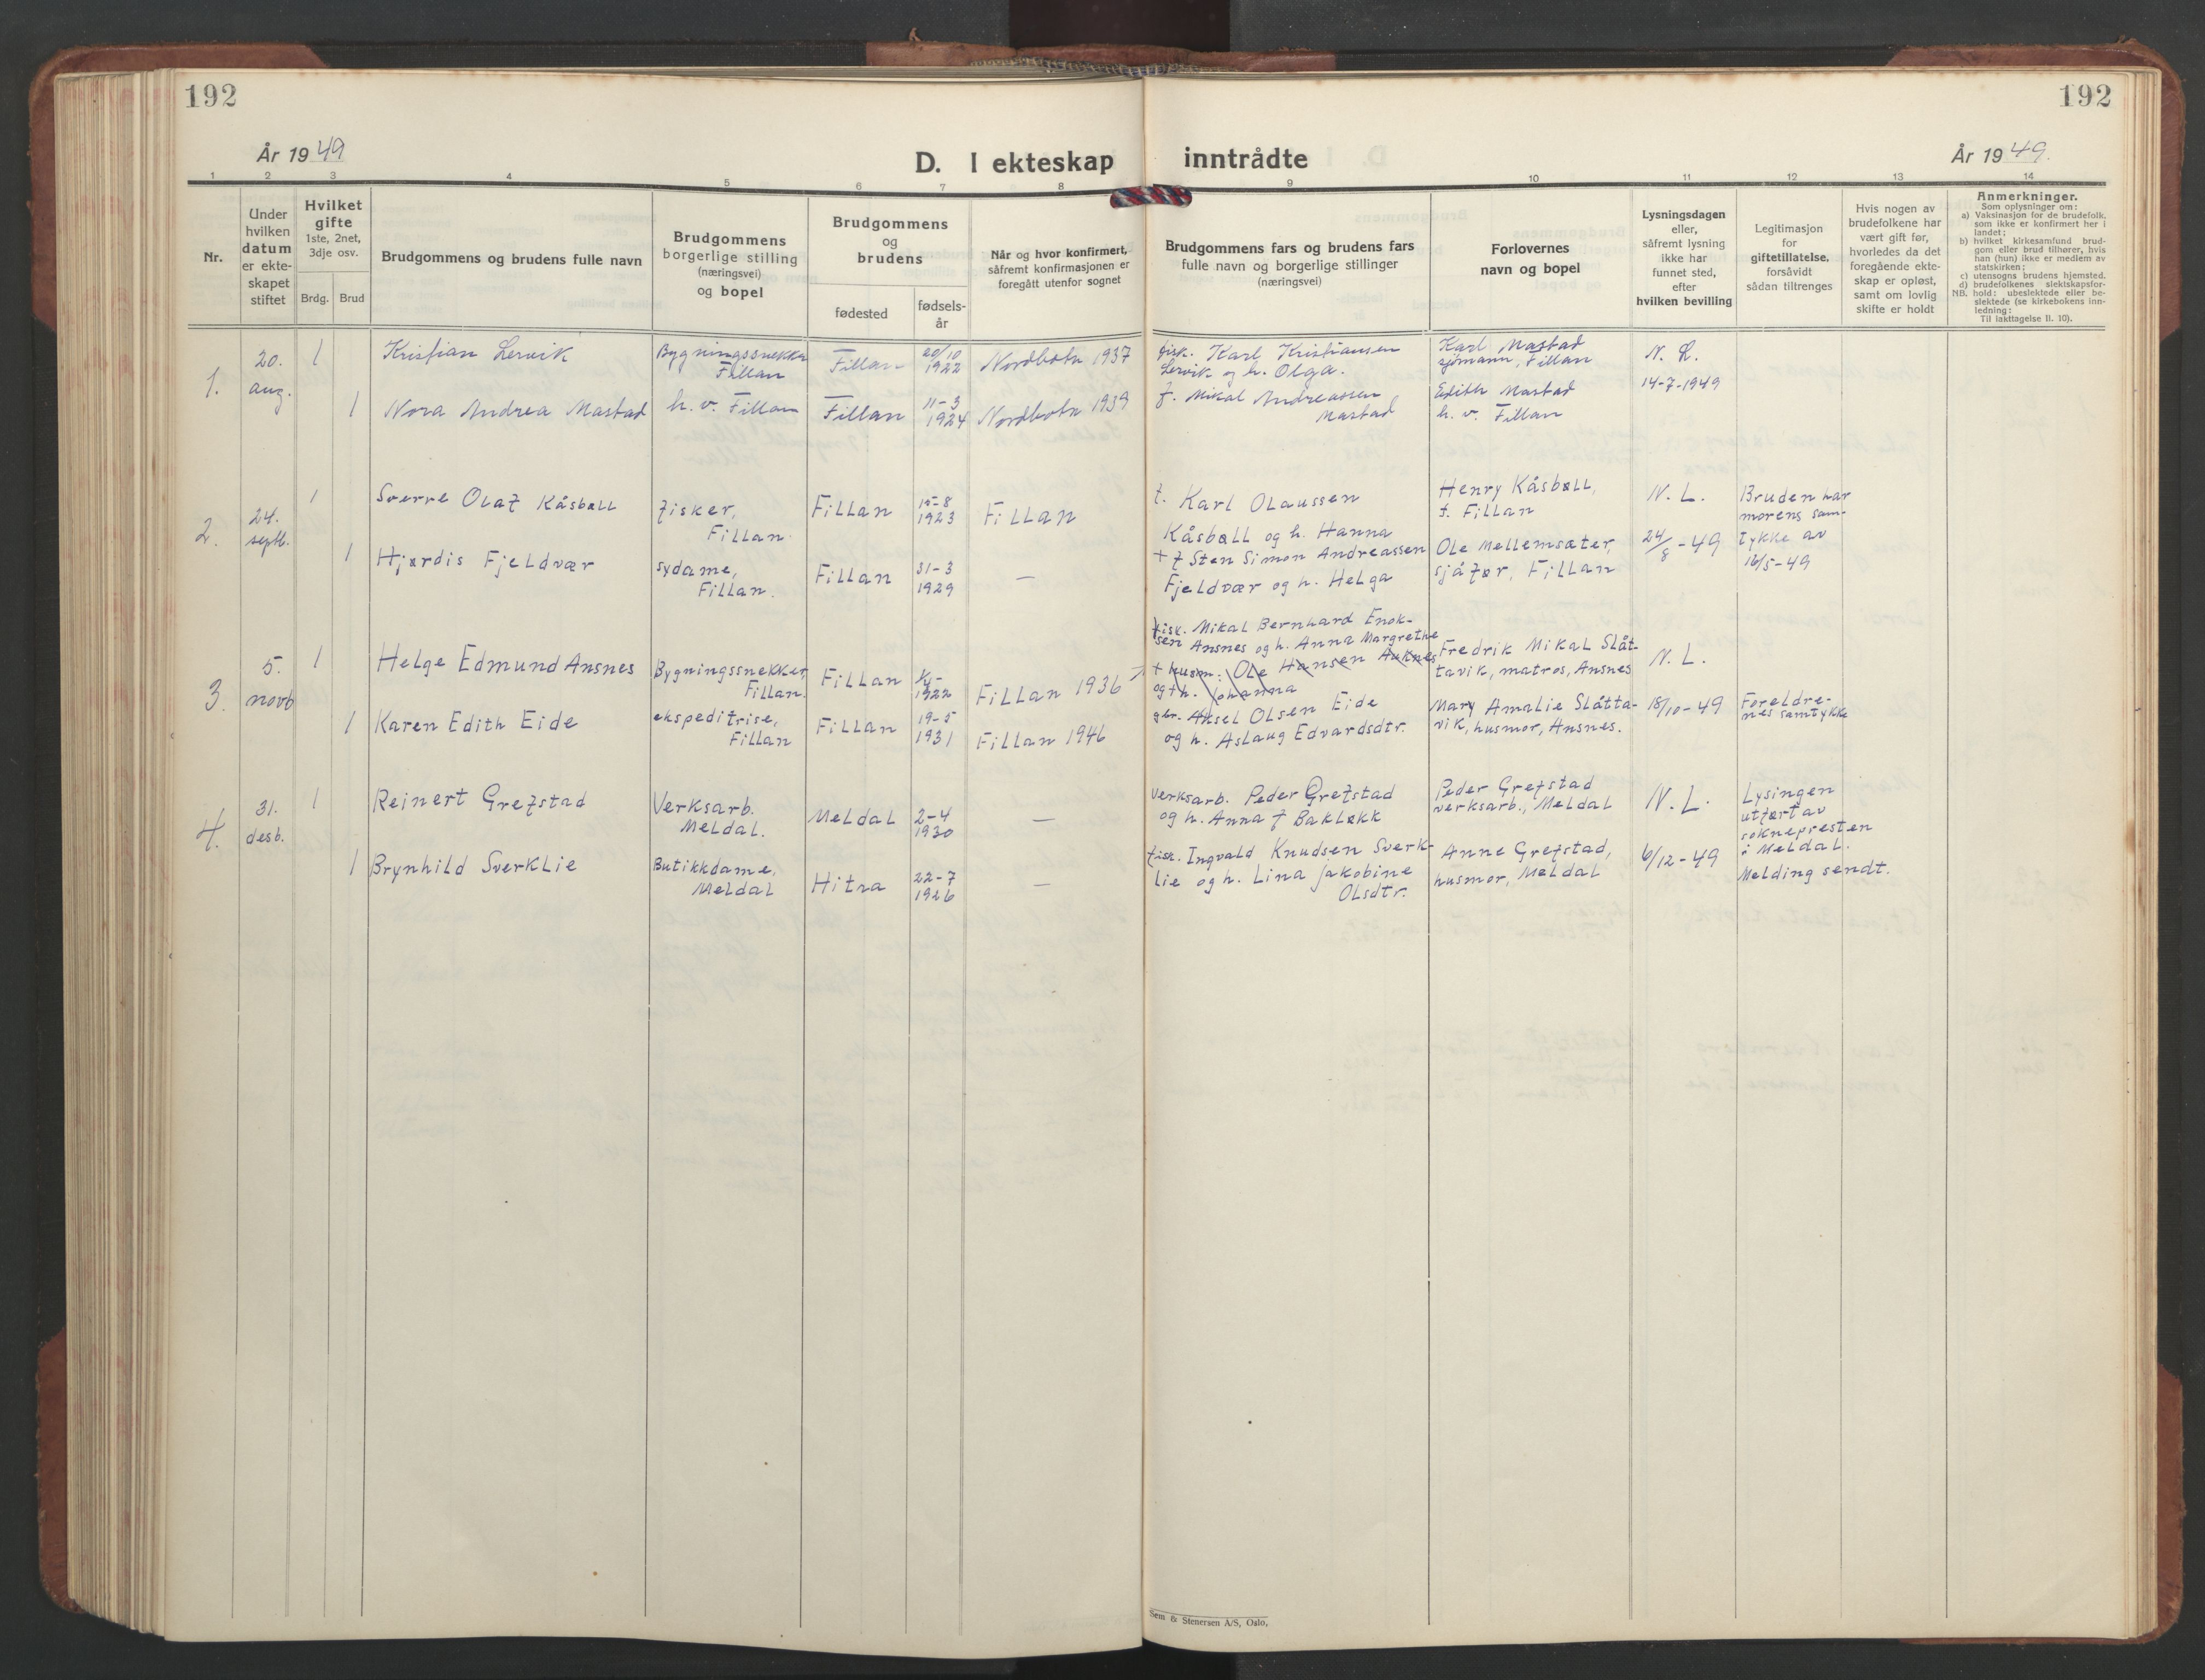 192
192
År 1949
D. I ekteskap inntrådte
År 1949.
1 2 3 4 5 6 7 8 9 10 11 12 13 14
Nr.
Under
hvilken
datum
er ekte-
skapet
stiftet
Hvilket
gifte
1ste, 2net,
3dje osv.
Brdg. Brud
Brudgommens og brudens fulle navn
Brudgommens
borgerlige stilling
(næringsvei)
og bopel
Brudgommens
og
brudens
fødested
fødsels-
år
Når og hvor konfirmert,
såfremt konfirmasjonen er
foregått utenfor sognet
Brudgommens fars og brudens fars
fulle navn og borgerlige stillinger
(næringsvei)
Forlovernes
navn og bopel
Lysningsdagen
eller,
såfremt lysning
ikke har
funnet sted,
efter
hvilken bevilling
Legitimasjon
for
giftetillatelse,
forsåvidt
sådan tiltrenges
Hvis nogen av
brudefolkene har
vært gift før,
hvorledes da det
foregående ekte-
skap er opløst,
samt om lovlig
skifte er holdt
Anmerkninger.
Som oplysninger om:
a) Vaksinasjon for de brudefolk,
som ikke er konfirmert her i
landet;
b) hvilket kirkesamfund brud-
gom eller brud tilhører, hvis
han (hun) ikke er medlem av
statskirken;
c) utensogns brudens hjemsted.
d) brudefolkenes slektskapsfor-
NB. hold: ubeslektede eller be-
slektede (se kirkebokens inn-
ledning:
Til iakttagelse II. 10).
1.
20.
aug.
1
Kristian Lervik
Bygningssnekker
Fillan
Fillan
20/10
1922
Nordbotn 1937
fisk. Karl Kristiansen
Lervik og h. Olga.
Karl Mastad
sjømann, Fillan
N. L.
14-7-1949
1
Nora Andrea Mastad
h. v. Fillan
Fillan
11-3
1924
Nordbotn 1939
f. Mikal Andreassen
Mastad
Edith Mastad
h. v. Fillan
2.
24.
septb.
1
Sverre Olaf Kåsbøll
fisker,
Fillan
Fillan
15-8
1923
Fillan
f. Karl Olaussen
Kåsbøll og h. Hanna
Henry Kåsbøll,
f. Fillan
N. L.
24/8-49
Bruden har
morens sam-
tykke av
16/5-49
1
Hjørdis Fjeldvær
sydame,
Fillan.
Fillan
31-3
1929
—
+ f Sten Simon Andreassen
Fjeldvær og h. Helga
Ole Mellemsæter,
sjåfør, Fillan
3.
5.
novb
1
Helge Edmund Ansnes
Bygningssnekker,
Fillan.
Fillan
1922
Fillan 1936
fisk. Mikal Bernhard Enok-
sen Ansnes og h. Anna Margrethe
+ husm: Ole Hansen Auknes
og + h. Johanna
Fredrik Mikal Slåt-
tavik, matros, Ansnes
N. L.
18/10-49
Foreldre-
nes samtykke
1
Karen Edith Eide
ekspeditrise,
Fillan
Fillan
19-5
1931
Fillan 1946
gbr. Aksel Olsen Eide
og h. Aslaug Edvardsdtr.
Mary Amalie Slåtta-
vik, husmor, Ansnes.
4.
31.
desb.
1
Reinert Grefstad
Verksarb.
Meldal.
Meldal
2-4
1930
—
Verksarb. Peder Grefstad
og h. Anna f Bakløkk
Peder Grefstad
verksarb., Meldal
N. L.
6/12-49
Lysingen
utført av
soknepresten
i Meldal.
Melding sendt.
1
Brynhild Sverklie
Butikkdame,
Meldal
Hitra
22-7
1926
—
fisk. Ingvald Knudsen Sverk-
lie og h. Lina Jakobine
Olsdtr.
Anne Grefstad,
husmor, Meldal
Sem & Stenersen A/S, Oslo.